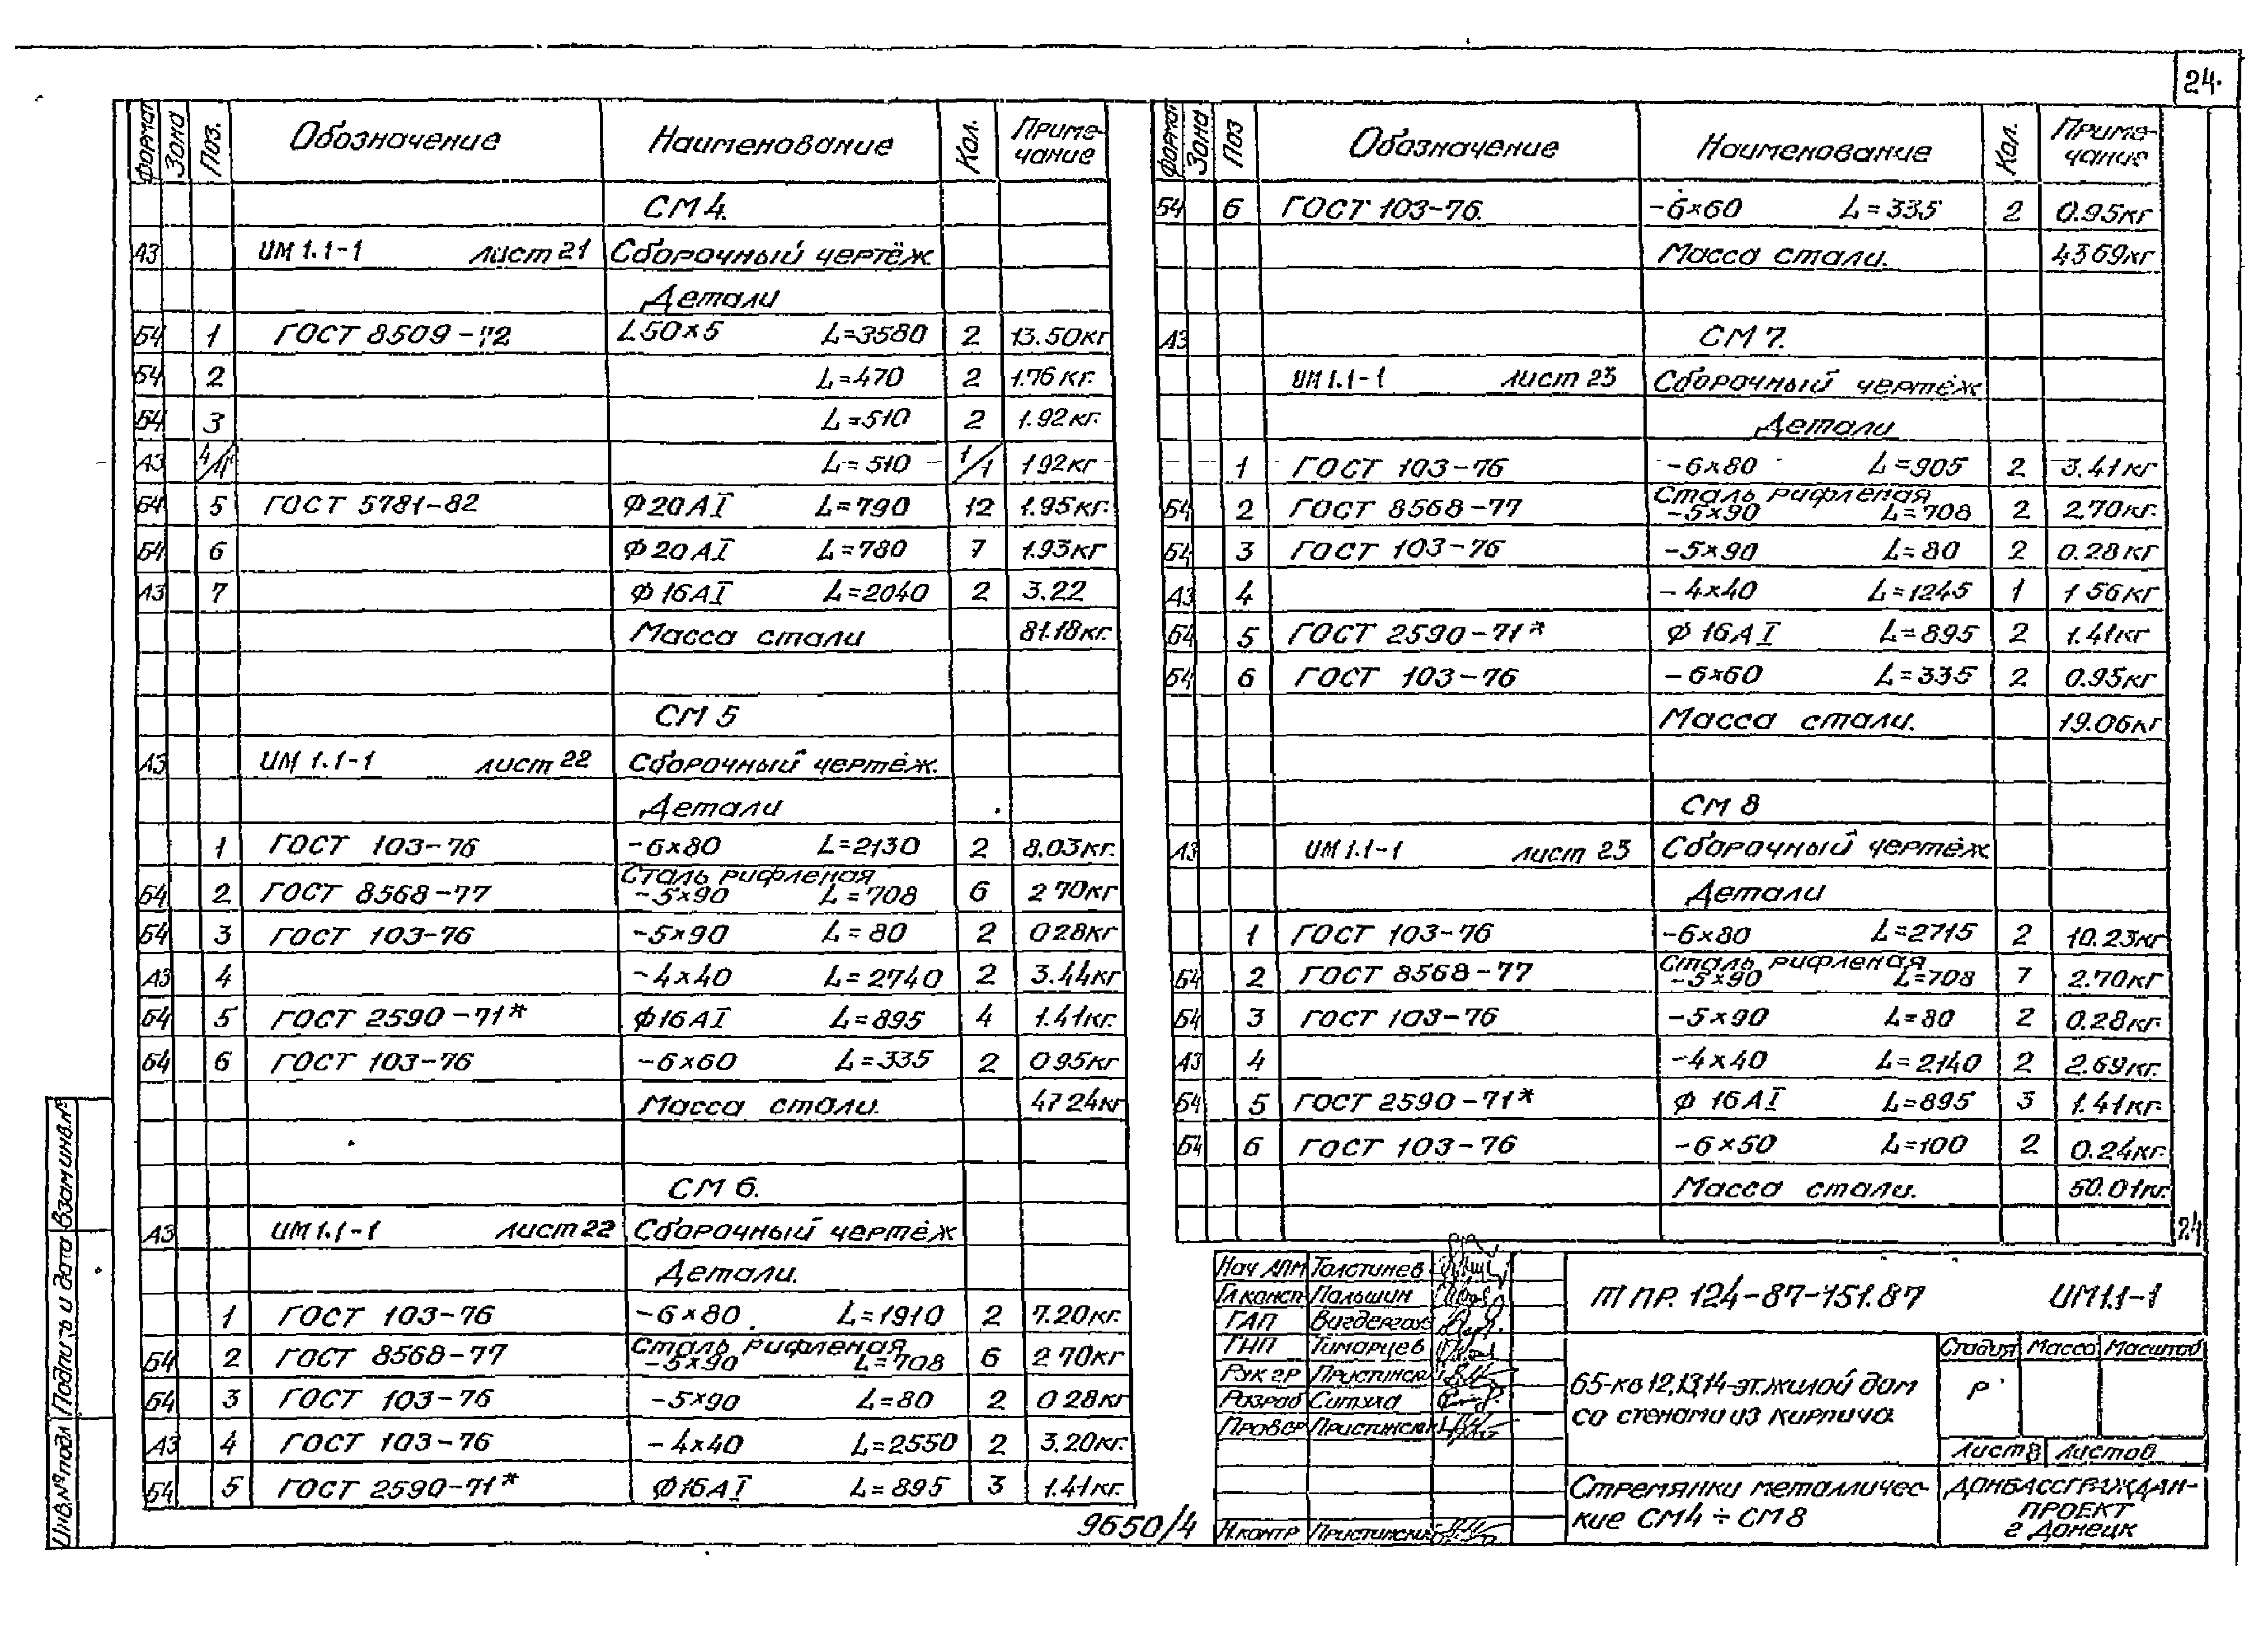 24.
Формат Зона Поз. Обозначение Наименование Кол. Приме-чание
СМ 4.
А3 ИМ 1.1-1 лист 21 Сборочный чертёж
Детали
Б4 1 ГОСТ 8509-72 L50×5 L=3580 2 13.50кг
Б4 2 L=470 2 1.76кг.
Б4 3 L=510 2 1.92кг.
А3 4/4' L=510 1/1 1 92кг
Б4 5 ГОСТ 5781-82 Ф20АI L=790 12 1.95кг.
Б4 6 Ф20АI L=780 7 1.93кг
А3 7 Ф16АI L=2040 2 3.22
Масса стали 81.18кг.
СМ 5
А3 ИМ 1.1-1 лист 22 Сборочный чертёж.
Детали
1 ГОСТ 103-76 -6×80 L=2130 2 8.03кг.
Б4 2 ГОСТ 8568-77 Сталь рифленая -5×90 L=708 6 2 70кг
Б4 3 ГОСТ 103-76 -5×90 L=80 2 0 28кг
А3 4 -4×40 L=2740 2 3.44кг
Б4 5 ГОСТ 2590-71* Ф16АI L=895 4 1.41кг.
Б4 6 ГОСТ 103-76 -6×60 L=335 2 0 95кг
Масса стали. 47 24кг
СМ 6.
А3 ИМ 1.1-1 лист 22 Сборочный чертёж
Детали.
1 ГОСТ 103-76 -6×80 L=1910 2 7.20кг.
Б4 2 ГОСТ 8568-77 Сталь рифленая -5×90 L=708 6 2 70кг
Б4 3 ГОСТ 103-76 -5×90 L=80 2 0 28кг
А3 4 ГОСТ 103-76 -4×40 L=2550 2 3.20кг.
Б4 5 ГОСТ 2590-71* Ф16АI L=895 3 1.41кг.
9650/4
Формат Зона Поз Обозначение Наименование Кол. Приме-чание
Б4 6 ГОСТ 103-76. -6×60 L=335 2 0.95кг
Масса стали. 43 69кг
А3 СМ 7.
ИМ 1.1-1 лист 23 Сборочный чертёж
Детали
1 ГОСТ 103-76 -6×80 L=905 2 3.41кг
Б4 2 ГОСТ 8568-77 Сталь рифленая -5×90 L=708 2 2.70кг.
Б4 3 ГОСТ 103-76 -5×90 L=80 2 0.28кг
А3 4 -4×40 L=1245 1 1 56кг
Б4 5 ГОСТ 2590-71* Ф 16АI L=895 2 1.41кг
Б4 6 ГОСТ 103-76 -6×60 L=335 2 0.95кг
Масса стали. 19.06кг
СМ 8
А3 ИМ 1.1-1 лист 23 Сборочный чертёж
Детали
1 ГОСТ 103-76 -6×80 L=2715 2 10.23кг
Б4 2 ГОСТ 8568-77 Сталь рифленая -5×90 L=708 7 2.70кг
Б4 3 ГОСТ 103-76 -5×90 L=80 2 0.28кг.
А3 4 -4×40 L=2140 2 2.69кг.
Б4 5 ГОСТ 2590-71* Ф 16АI L=895 3 1.41кг.
Б4 6 ГОСТ 103-76 -6×50 L=100 2 0.24кг.
Масса стали. 50.01кг.
24
Нач АПМ Толстинев
Гл.консп Пальшин
ГАП
ГИП Тимарцев
Рук гр Пристинск
Разраб
Провер Пристинск
Н.контр Пристинск
Т ПР. 124-87-151.87 ИМ1.1-1
65-кв 12,13,14-эт.жилой дом
со стенами из кирпича.
Стадия Масса Масштаб
Р
Лист 8 Листов
Стремянки металличес-
кие СМ4 ÷ СМ8
ДОНБАССГРАЖДАН-
ПРОЕКТ
г Донецк
Инв.№подл Подпись и дата Взам инв.№